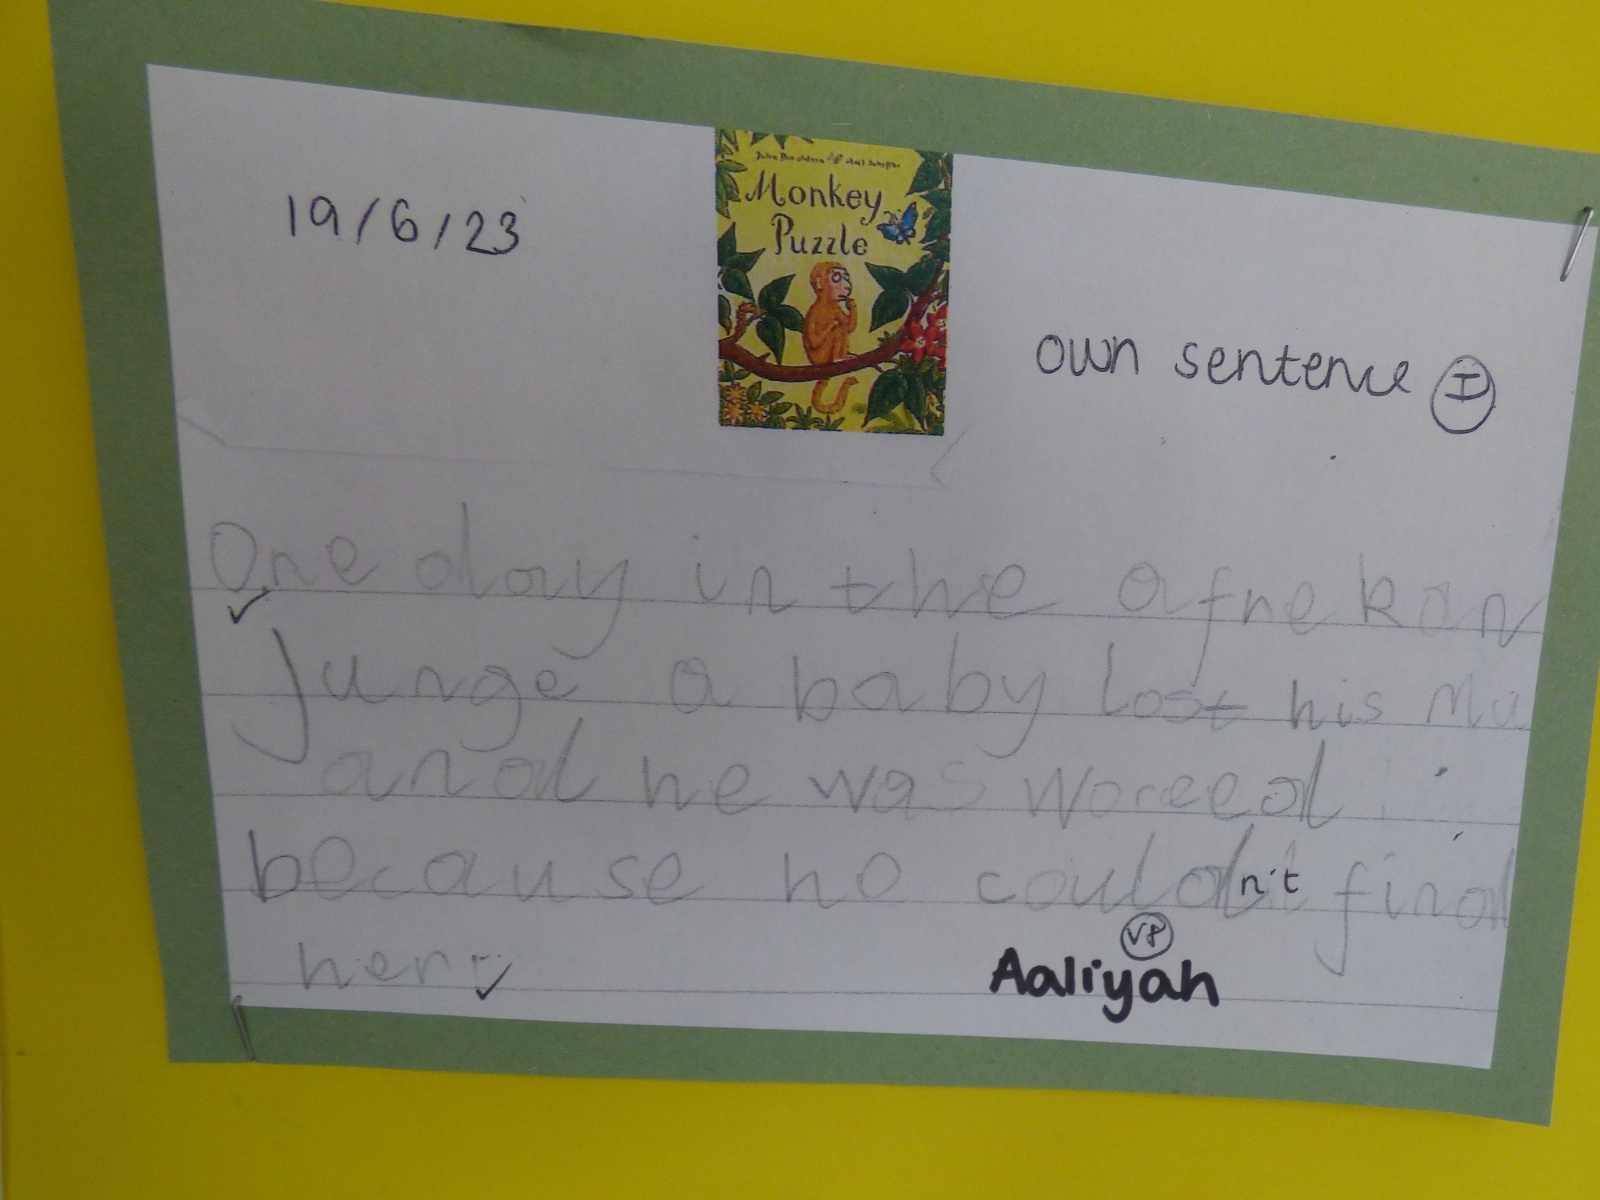 19/6/23
Julia Donaldson & Axel Scheffler
Monkey
Puzzle
own sentence I
One day in the afrekan
junge a baby lost his Mu
and he was woreed
because he couldn't find
her.
VF
Aaliyah